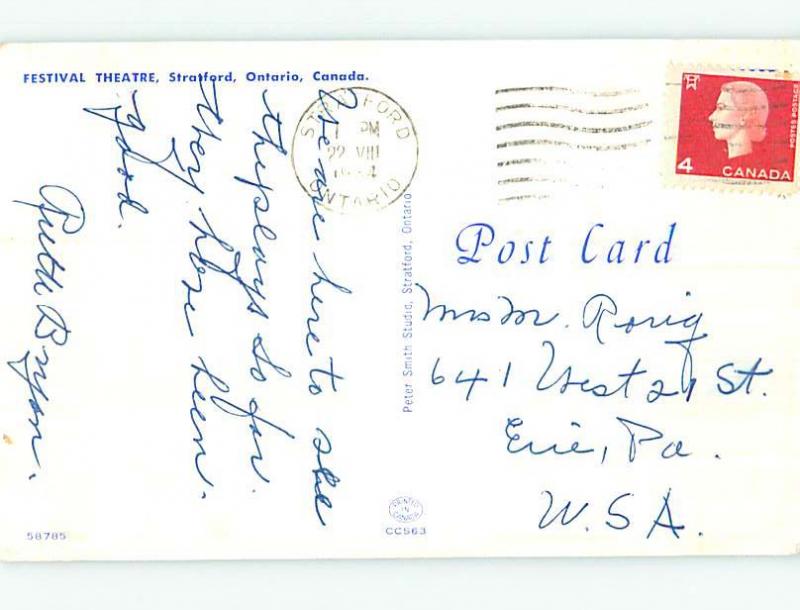 FESTIVAL THEATRE, Stratford, Ontario, Canada.
We are here to see
the plays. So far
they have been
good.
Ruth Bryon.
STRATFORD
PM
22 VIII
ONTARIO
4
CANADA
POSTES POSTAGE
Post Card
Mrs M. Rorig
641 West 21 St.
Erie, Pa.
U.S.A.
Peter Smith Studio, Stratford, Ontario
PRINTED
IN
CANADA
58785
CC563